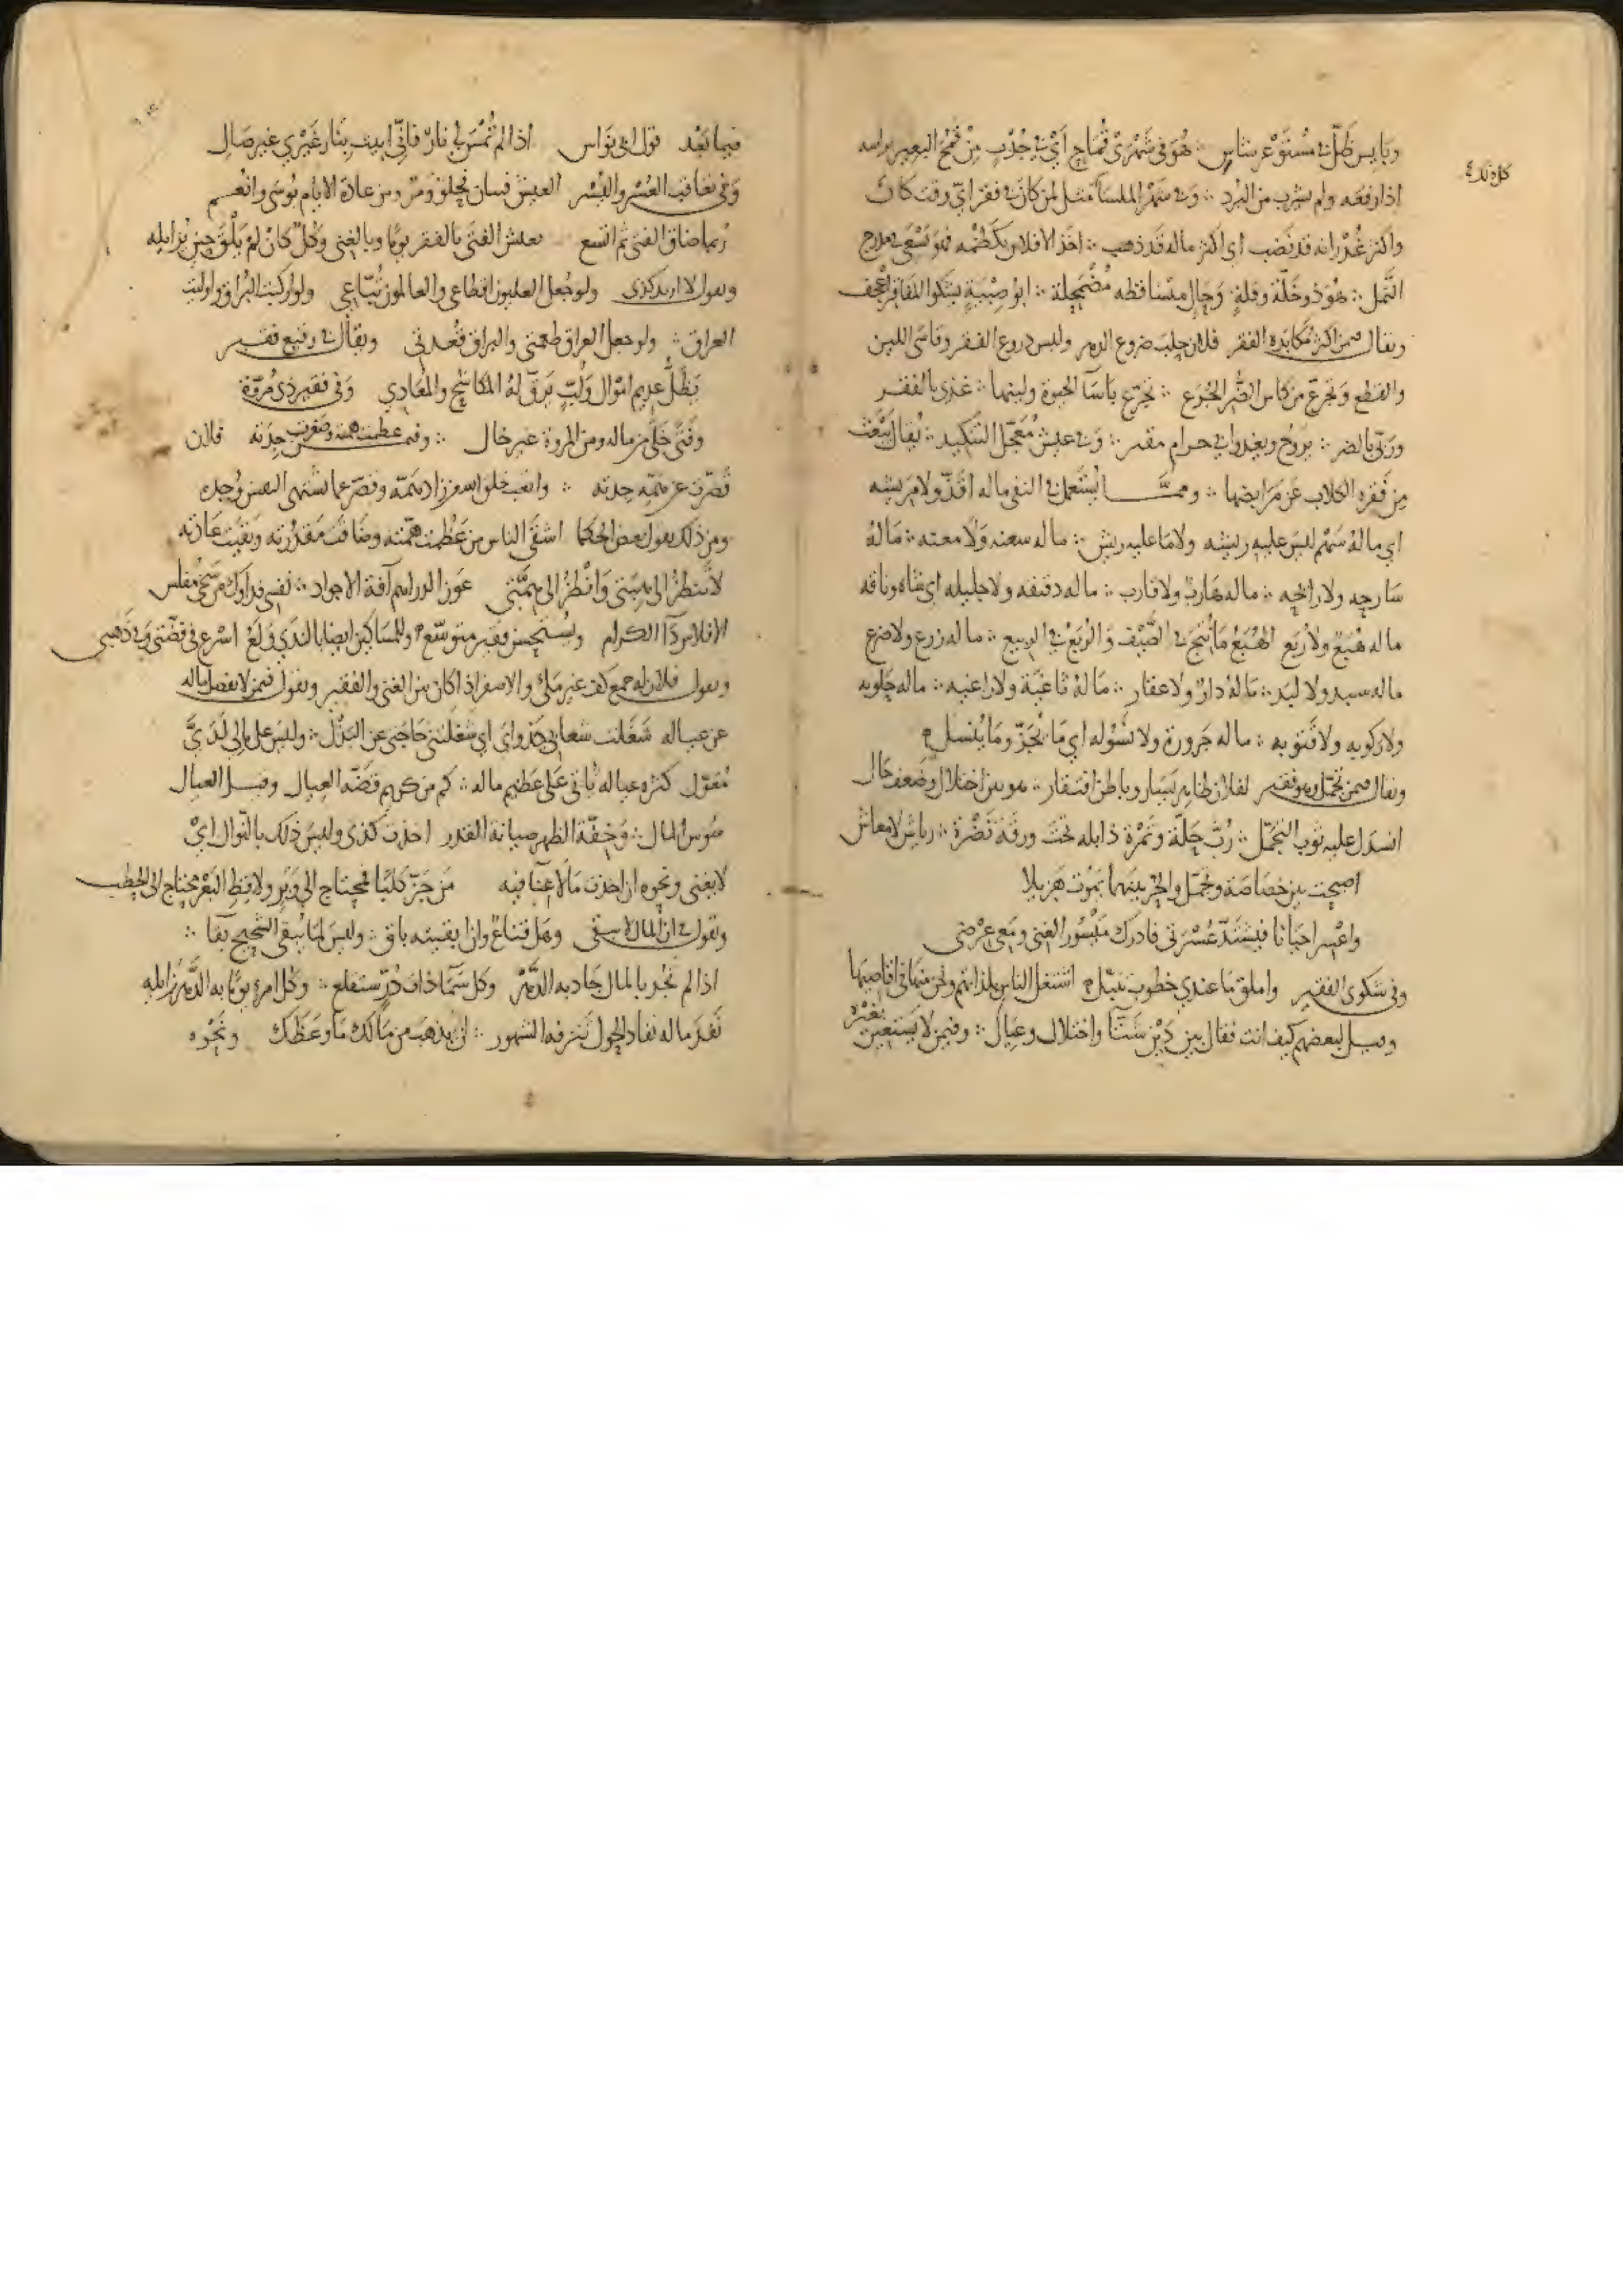 وبايس ظل في مستوعر شاس ∴ هو في شهري قماح اي في جدب من قمح البعير براسه
اذا رفعه ولم يشرب من البرد ∴ وفي شهر الملسا مثل لمن كان في فقر اي وقت كان
واكثر غدرانه قد نضب اي اكثر ماله قد ذهب ∴ اخذ الافلاس بكظمه فهو يسعى
النمل ∴ هو ذو خلة وقلة وحال متساقطه مضمحلة ∴ ابو صبية يشكوا المفاقر اعجف
ويقال فيمن اكثر مكابدة الفقر فلان حلب ضروع الدهر ولبس دروع الفقر وقاسى اللين
والفظع وتجرع من كاس الضر الجرع ∴ تجرع باسآ الحيوة ولينها ∴ غذي بالفقر
وربي بالضر ∴ يروح ويغدوا في حرام مقدر ∴ وفي عيش معجل التنكيد ∴ يقال
من فقره الكلاب عن مرابضها ∴ ومما يستعمل في النفي ماله اقذ ولا مريش
اي ماله سهم ليس عليه ريش ولا ما عليه ريش ∴ ماله سعنه ولا معنه ∴ ماله
سارحه ولا رائحه ∴ ماله هارب ولا قارب ∴ ماله دقيقه ولا جليله اي شاه وناقه
ماله هبع ولا ربع الهبع ما نتج في الصيف والربع في الربيع ∴ ماله زرع ولا ضرع
ماله سبد ولا لبد ∴ ماله دار ولا عقار ∴ ماله ثاغية ولا راغيه ∴ ماله حلوبه
ولا ركوبه ولا قتوبه ∴ ماله جرورة ولا نسوله اي ما يجز وما ينسل
ويقال فيمن تجمل وهو فقير لفلان ظاهر يسار وباطن افتقار ∴ هو بين اختلال وضعف حال
انسدل عليه ثوب التجمل ∴ رب حلة وثمرة ذابله تحت ورقة نضرة ∴ رياش لا معاش
اصبحت بين خصاصة وتجمل والحر بينهما يموت هزيلا
واعسر احيانا فيشتد عسرتي فادرك ميسور الغنى ومعي عرضي
وفي شكوى الفقير واملق ما عندي خطوب تنبل اشتغل الناس بلذاتهم ونحن منها في اقاصيها
وقيل لبعضهم كيف انت فقال بين دين شتا واختلال وعيال ∴ وفيمن لا يستعين بغيره
فيما بعد قول ابي نواس اذا لم تمس لي نار فاني ابيت بنار غيري غير صال
وفي تعاقب العسر واليسر العيش فنان فحلو ومر ومن عادة الايام بوسى وانعم
ربما ضاق الفتى ثم اتسع يعيش الفتى بالفقر يوما وبالغنى وكل كان لم يلق حين يزايله
ويقول لا اريد كذى ولو جعل العليون اقطاعي والعالمون تباعي ولو اركبت البراق واوليت
العراق ∴ ولو جعل العراق طعمتي والبراق قعدتي ويقال في رفيع فقير
يظل عديم اموال ولب يرق له المكاشح والمعادي وفي فقير ذي مروة
وفتى خلى من ماله ومن المروة غير خال ∴ وفيمن عظمت همته وضعفت جدته فلان
قصرت عن همته جدته ∴ واتعب خلق الله من زاد همه وقصر عما تشتهي النفس وجده
ومن ذلك يقول بعض الحكما اشقى الناس من عظمت همته وضاقت مقدرته وبقيت عادته
لا تنظر الى هيبتي وانظر الى همتي عوز الدراهم آفة الاجواد ∴ نفسي فداوك من سخي مفلس
الافلاس دآ الكرام ويستحسن فقير متوسع وللمساكين ايضا بالندى ولع اسرع في فضتي وفي ذهبي
ويقول فلان له جمع كف غير ملك والاسفر اذا كان بين الغني والفقير ويقول فيمن لا يفضل ماله
عن عياله شغلت شعابي جدواي اي شغلتني حاجتي عن البذل ∴ وليس على مالي لدي
معول كثرة عياله تاتي على عظيم ماله ∴ كم من كريم فضه العيال وقيل العيال
سوس المال ∴ وخفة الظهر صيانة القدر اخذت كذى وليس ذلك بالنوال اي
لا يغني ونحوه ان اخذت ما لا غنا فيه من جز كلبا فمحتاج الى وبر ولاقط البعر محتاج الى الحطب
ويقول في ان المال لا يبقى وهل قناع وان ابقيته باق ∴ وليس لما يبقى الشحيح بقا ∴
اذا لم تجد بالمال جاد به الدهر وكل سما ذات در ستقلع ∴ وكل امرء يوما به الدهر زايله
نفد ماله نفاد الحول تنزفه الشهور ∴ لن يذهب من مالك ما وعظك ونحوه